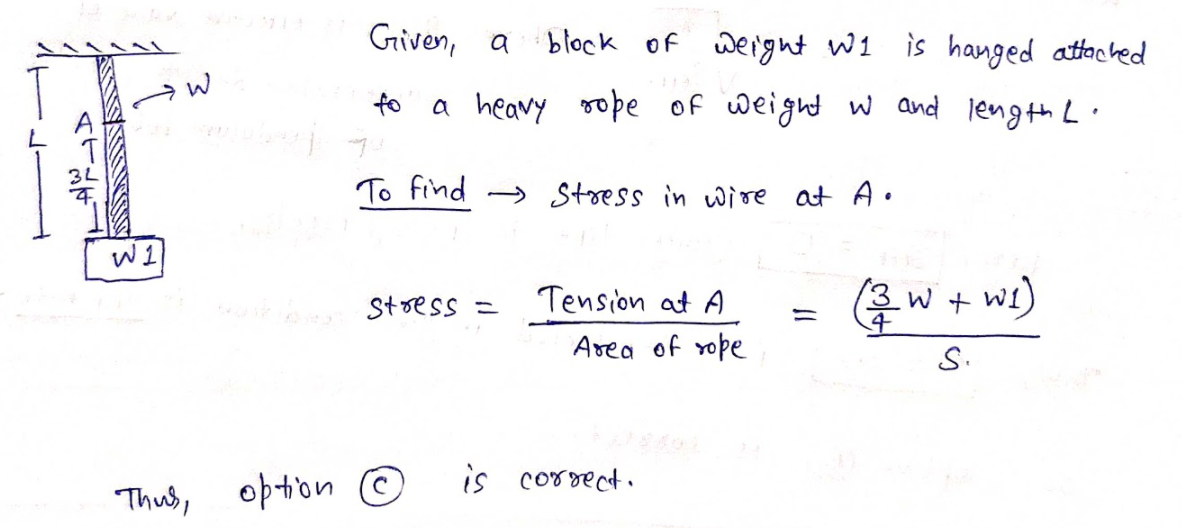 Given, a block of weight W1 is hanged attached
to a heavy rope of weight W and length L.
W
A
L
3L/4
W1
To find → Stress in wire at A.
Stress = Tension at A / Area of rope = (3/4 W + W1) / S.
Thus, option (c) is correct.